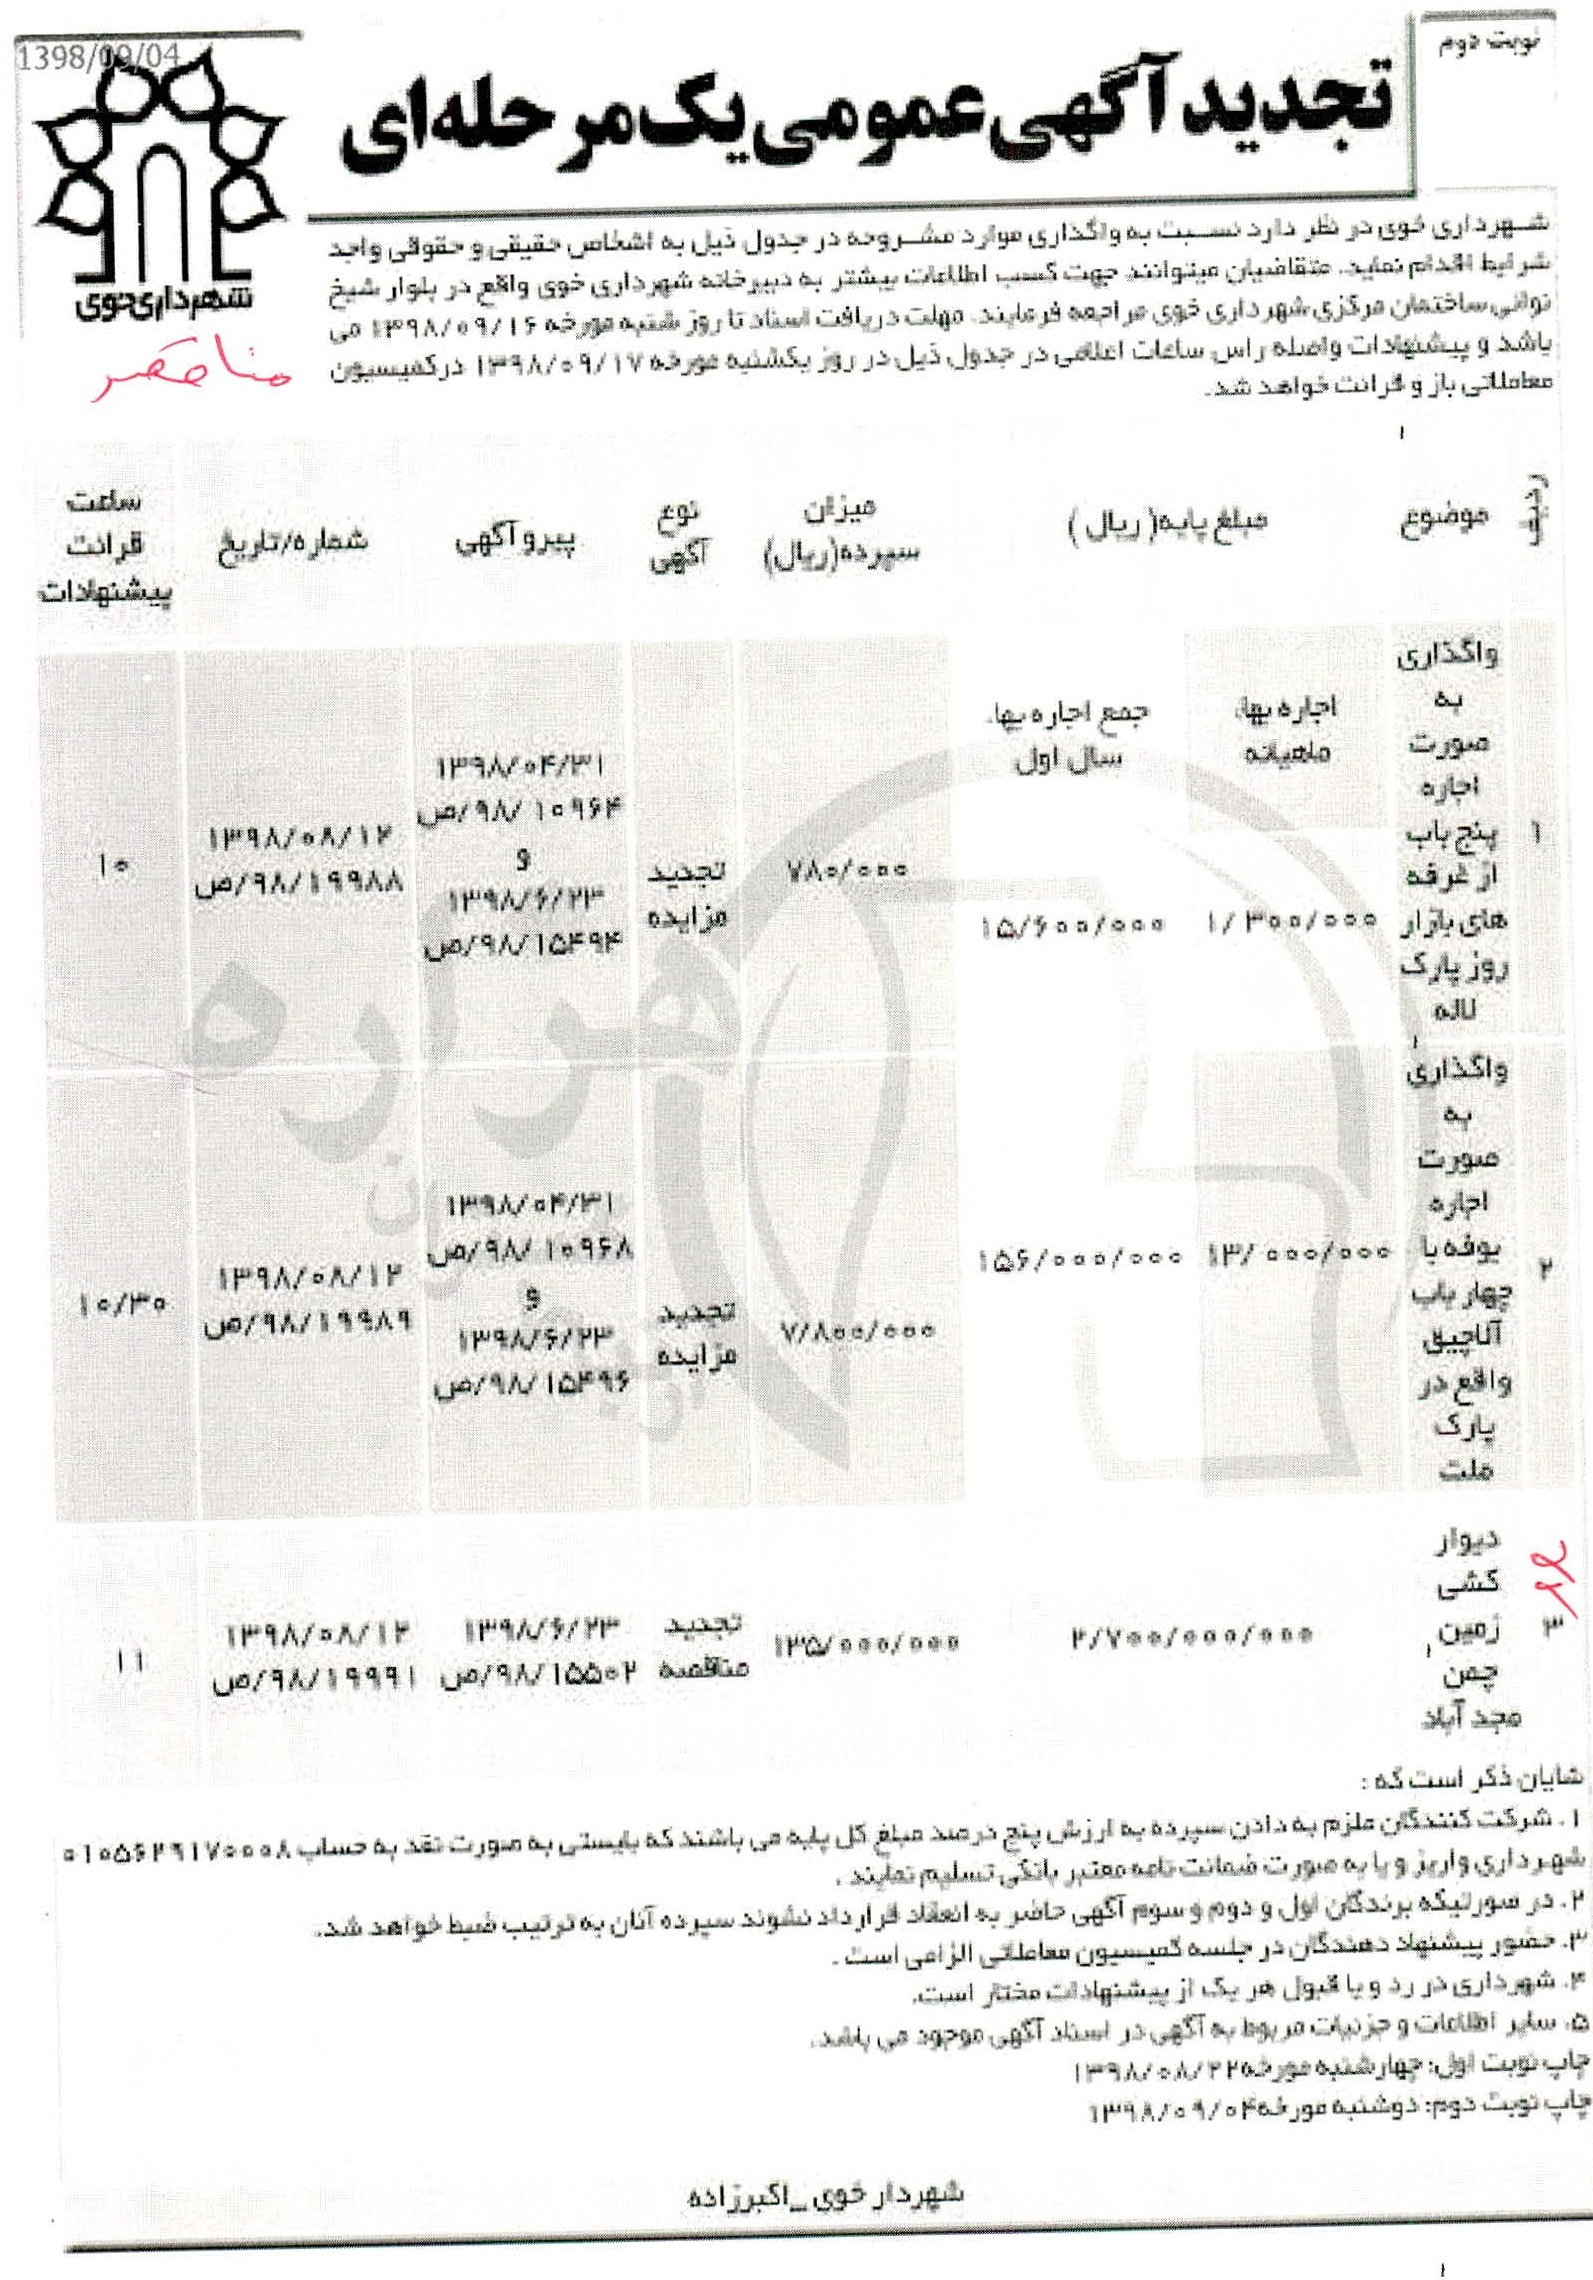 1398/09/04
نوبت دوم
تجدید آگهی عمومی یک مرحله‌ای
شهرداری خوی
مناقصه
شهرداری خوی در نظر دارد نسبت به واگذاری موارد مشروحه در جدول ذیل به اشخاص حقیقی و حقوقی واجد
شرایط اقدام نماید. متقاضیان میتوانند جهت کسب اطلاعات بیشتر به دبیرخانه شهرداری خوی واقع در بلوار شیخ
نوائی ساختمان مرکزی شهرداری خوی مراجعه فرمایند. مهلت دریافت اسناد تا روز شنبه مورخه ۱۳۹۸/۰۹/۱۶ می
باشد و پیشنهادات واصله راس ساعات اعلامی در جدول ذیل در روز یکشنبه مورخه ۱۳۹۸/۰۹/۱۷ درکمیسیون
معاملاتی باز و قرائت خواهد شد.
ردیف
موضوع
مبلغ پایه( ریال )
میزان
سپرده(ریال)
نوع
آگهی
پیرو آگهی
شماره/تاریخ
ساعت
قرائت
پیشنهادات
۱
واگذاری
به
صورت
اجاره
پنج باب
از غرفه
های بازار
روز پارک
لاله
اجاره بهاء
ماهیانه
۱/۳۰۰/۰۰۰
جمع اجاره بهاء
سال اول
۱۵/۶۰۰/۰۰۰
۷۸۰/۰۰۰
تجدید
مزایده
۱۳۹۸/۰۴/۳۱
۹۸/۱۰۹۶۴/ص
و
۱۳۹۸/۶/۲۳
۹۸/۱۵۴۹۴/ص
۱۳۹۸/۰۸/۱۲
۹۸/۱۹۹۸۸/ص
۱۰
۲
واگذاری
به
صورت
اجاره
بوفه با
چهار باب
آلاچیق
واقع در
پارک
ملت
۱۳/۰۰۰/۰۰۰
۱۵۶/۰۰۰/۰۰۰
۷/۸۰۰/۰۰۰
تجدید
مزایده
۱۳۹۸/۰۴/۳۱
۹۸/۱۰۹۶۸/ص
و
۱۳۹۸/۶/۲۳
۹۸/۱۵۴۹۶/ص
۱۳۹۸/۰۸/۱۲
۹۸/۱۹۹۸۹/ص
۱۰/۳۰
۳
دیوار
کشی
زمین
چمن
مجد آباد
۲/۷۰۰/۰۰۰/۰۰۰
۱۳۵/۰۰۰/۰۰۰
تجدید
مناقصه
۱۳۹۸/۶/۲۳
۹۸/۱۵۵۰۲/ص
۱۳۹۸/۰۸/۱۲
۹۸/۱۹۹۹۱/ص
۱۱
هزاره
شایان ذکر است که :
۱. شرکت کنندگان ملزم به دادن سپرده به ارزش پنج درصد مبلغ کل پایه می باشند که بایستی به صورت نقد به حساب ۰۱۰۵۶۲۹۱۷۰۰۰۸
شهرداری واریز و یا به صورت ضمانت نامه معتبر بانکی تسلیم نمایند .
۲. در صورتیکه برندگان اول و دوم و سوم آگهی حاضر به انعقاد قرارداد نشوند سپرده آنان به ترتیب ضبط خواهد شد.
۳. حضور پیشنهاد دهندگان در جلسه کمیسیون معاملاتی الزامی است .
۴. شهرداری در رد و یا قبول هر یک از پیشنهادات مختار است.
۵. سایر اطلاعات و جزئیات مربوط به آگهی در اسناد آگهی موجود می باشد.
چاپ نوبت اول: چهارشنبه مورخه۱۳۹۸/۰۸/۲۲
چاپ نوبت دوم: دوشنبه مورخه۱۳۹۸/۰۹/۰۴
شهردار خوی _اکبرزاده